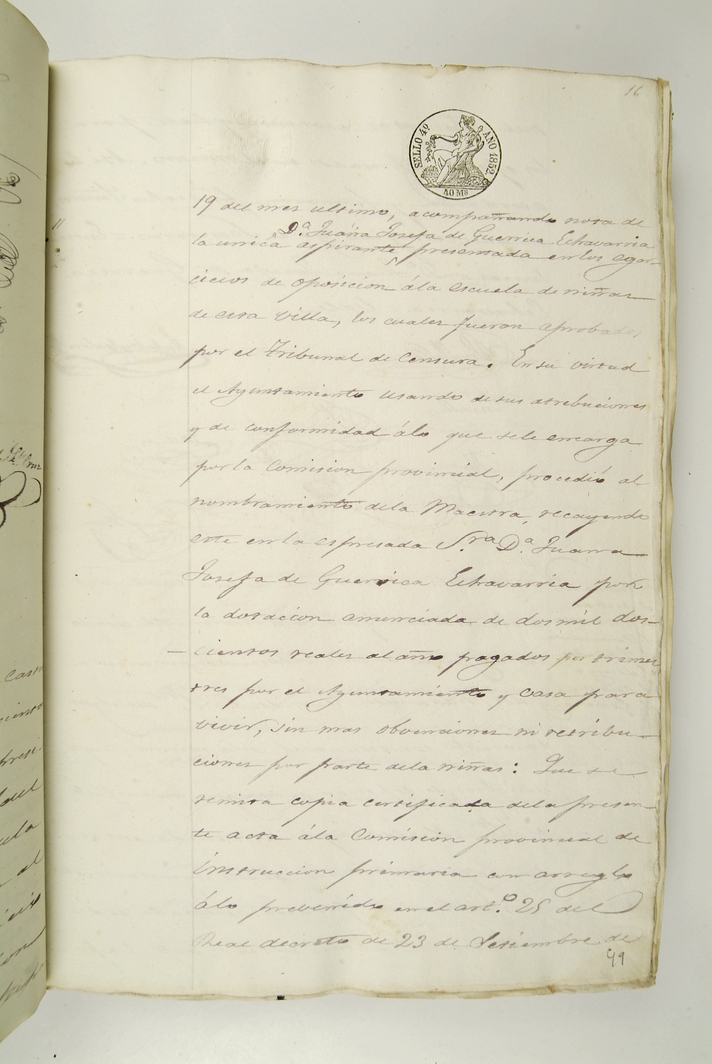 16
SELLO 4º AÑO 1852
40 Ms
19 del mes ultimo, acompañando nota de
Dª Juana Josefa de Guerrica Echavarria
la unica aspirante presentada en los eger-
cicios de oposicion ála escuela de niñas
de esta Villa, los cuales fueron aprobados
por el Tribunal de Censura. En su virtud
el Ayuntamiento usando de sus atribuciones
y de conformidad álo que se le encarga
por la Comision provincial, procedió al
nombramiento dela Maestra, recayendo
este en la espresada S.ra D.a Juana
Josefa de Guerrica Echavarria por
la dotacion anunciada de dos mil dos-
cientos reales al año pagados por trimes
tres por el Ayuntamiento y casa para
vivir, sin mas obvenciones ni retribu-
ciones por parte dela niñas: Que se
remita copia certificada dela presen-
te acta ála Comision provincial de
instruccion primaria con arreglo
álo prevenido en el art.o 25 del
Real decreto de 23 de Setiembre de
49